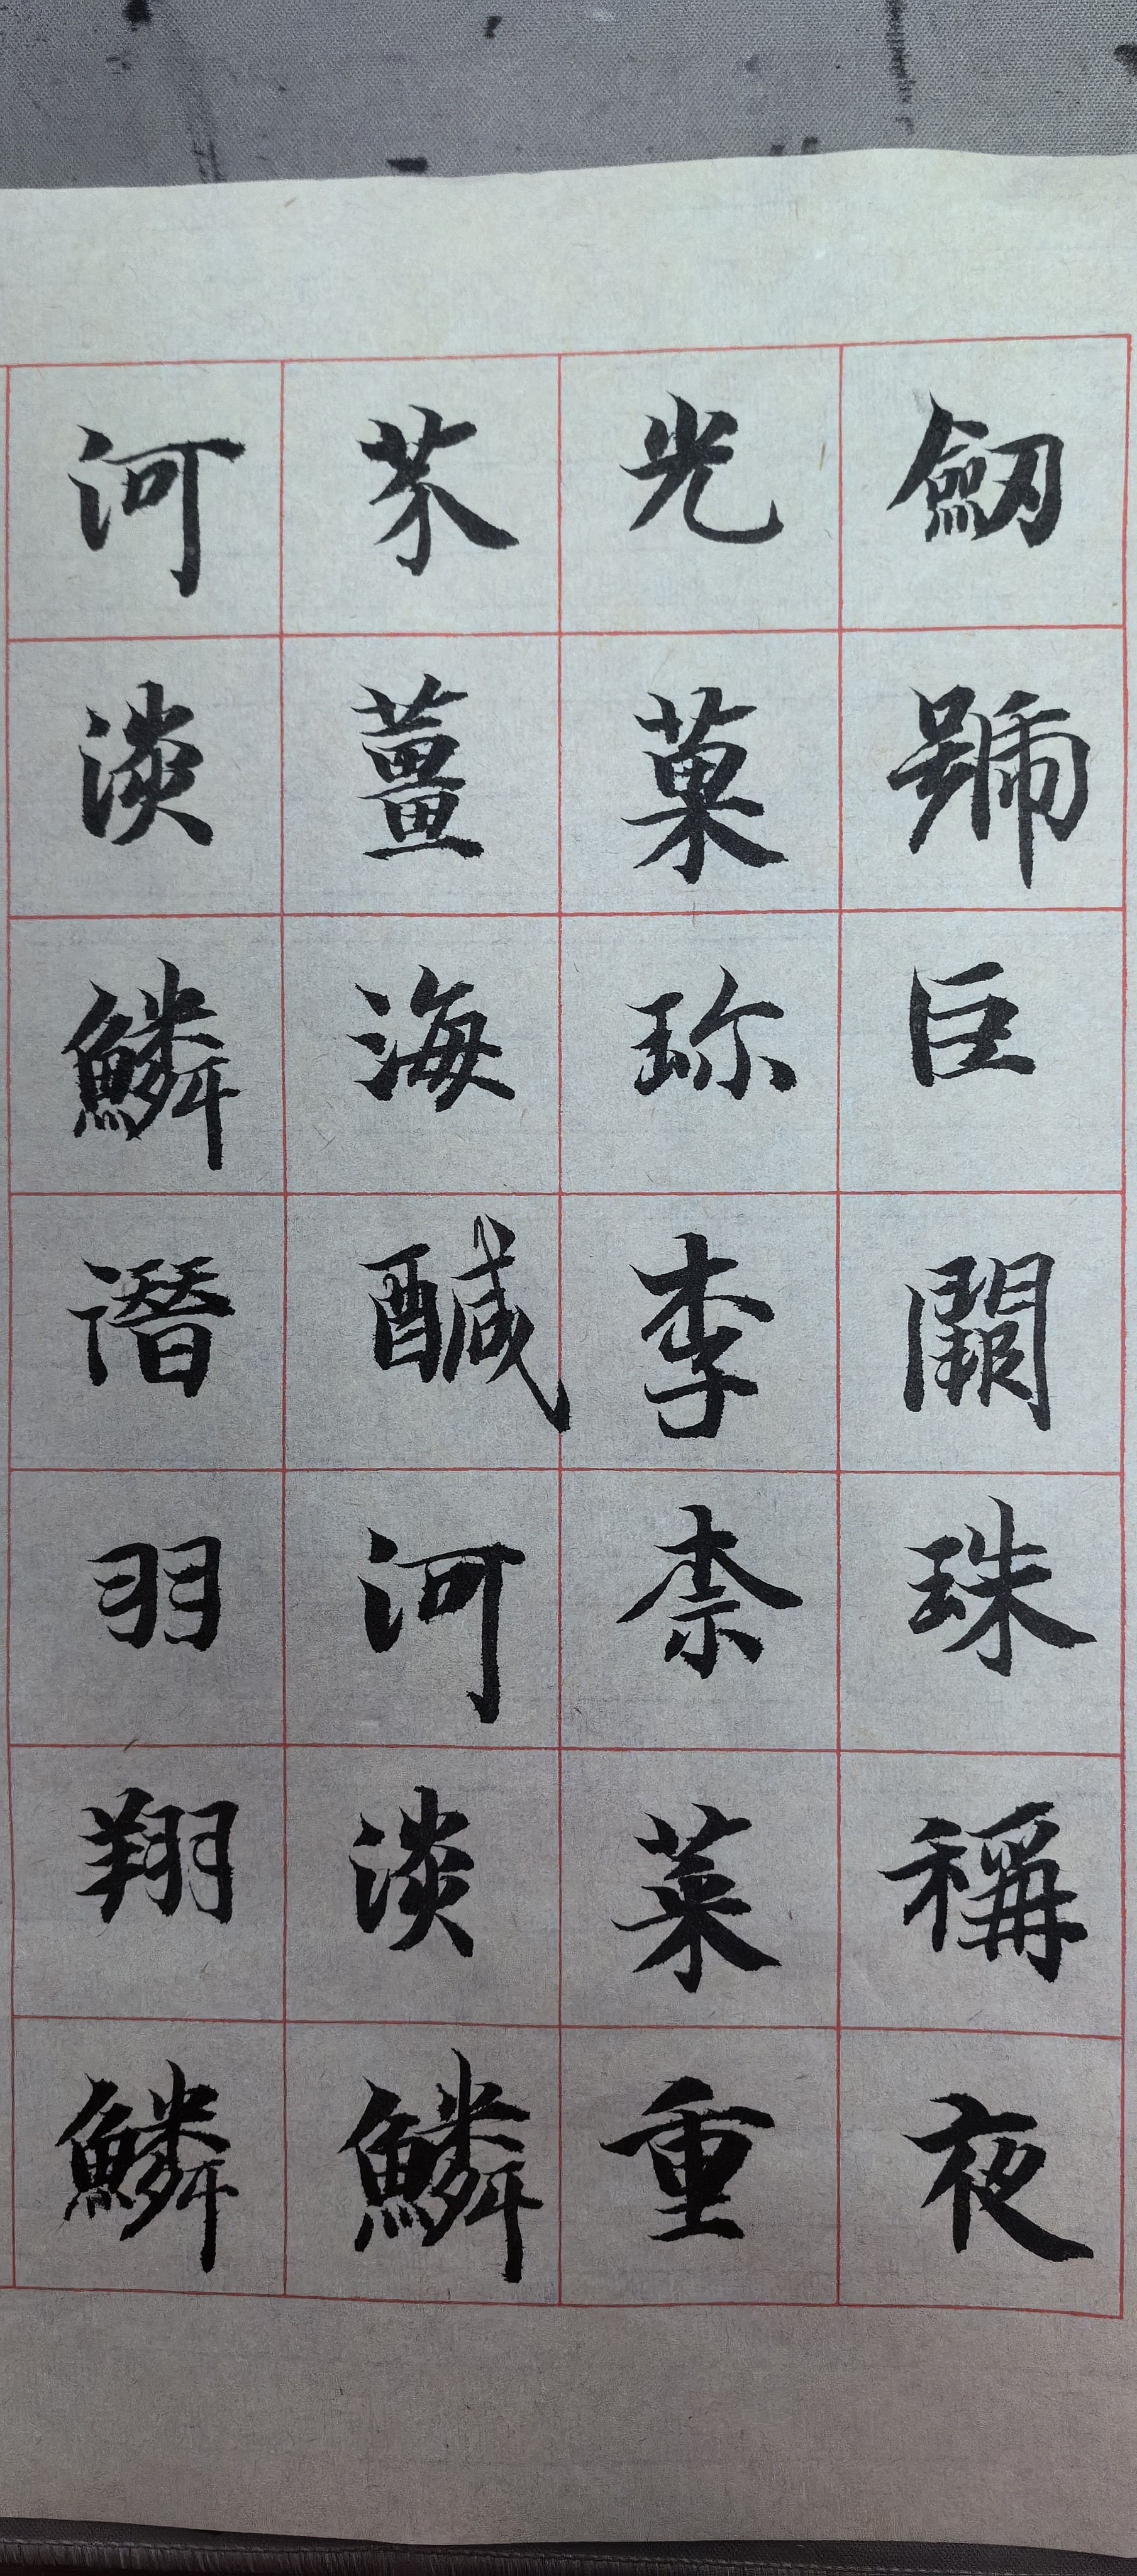 劒號巨闕珠稱夜
光菓珎李柰菜重
芥薑海鹹河淡鱗
河淡鱗潛羽翔鱗